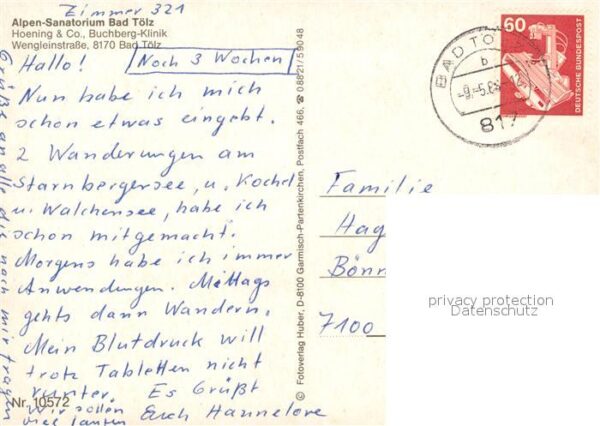 Zimmer 321
Alpen-Sanatorium Bad Tölz
Hoening & Co., Buchberg-Klinik
Wengleinstraße, 8170 Bad Tölz
Hallo! Noch 3 Wochen
Nun habe ich mich
schon etwas eingebt.
2 Wanderungen am
Starnbergersee, u. Kochel
u. Walchensee, habe ich
schon mitgemacht.
Morgens habe ich immer
Anwendungen. Mittags
gehts dann Wandern.
Mein Blutdruck will
trotz Tabletten nicht
runter. Es Grüßt
Wir sollen Euch Hannelore
viel laufen
Nr. 10572
Grüße an alle die nach mir fragen
© Fotoverlag Huber, D-8100 Garmisch-Partenkirchen, Postfach 466, ☎ 08821/59048
BAD TÖ
b
817
60
DEUTSCHE BUNDESPOST
Familie
Hag
Bönn
7100
privacy protection
Datenschutz